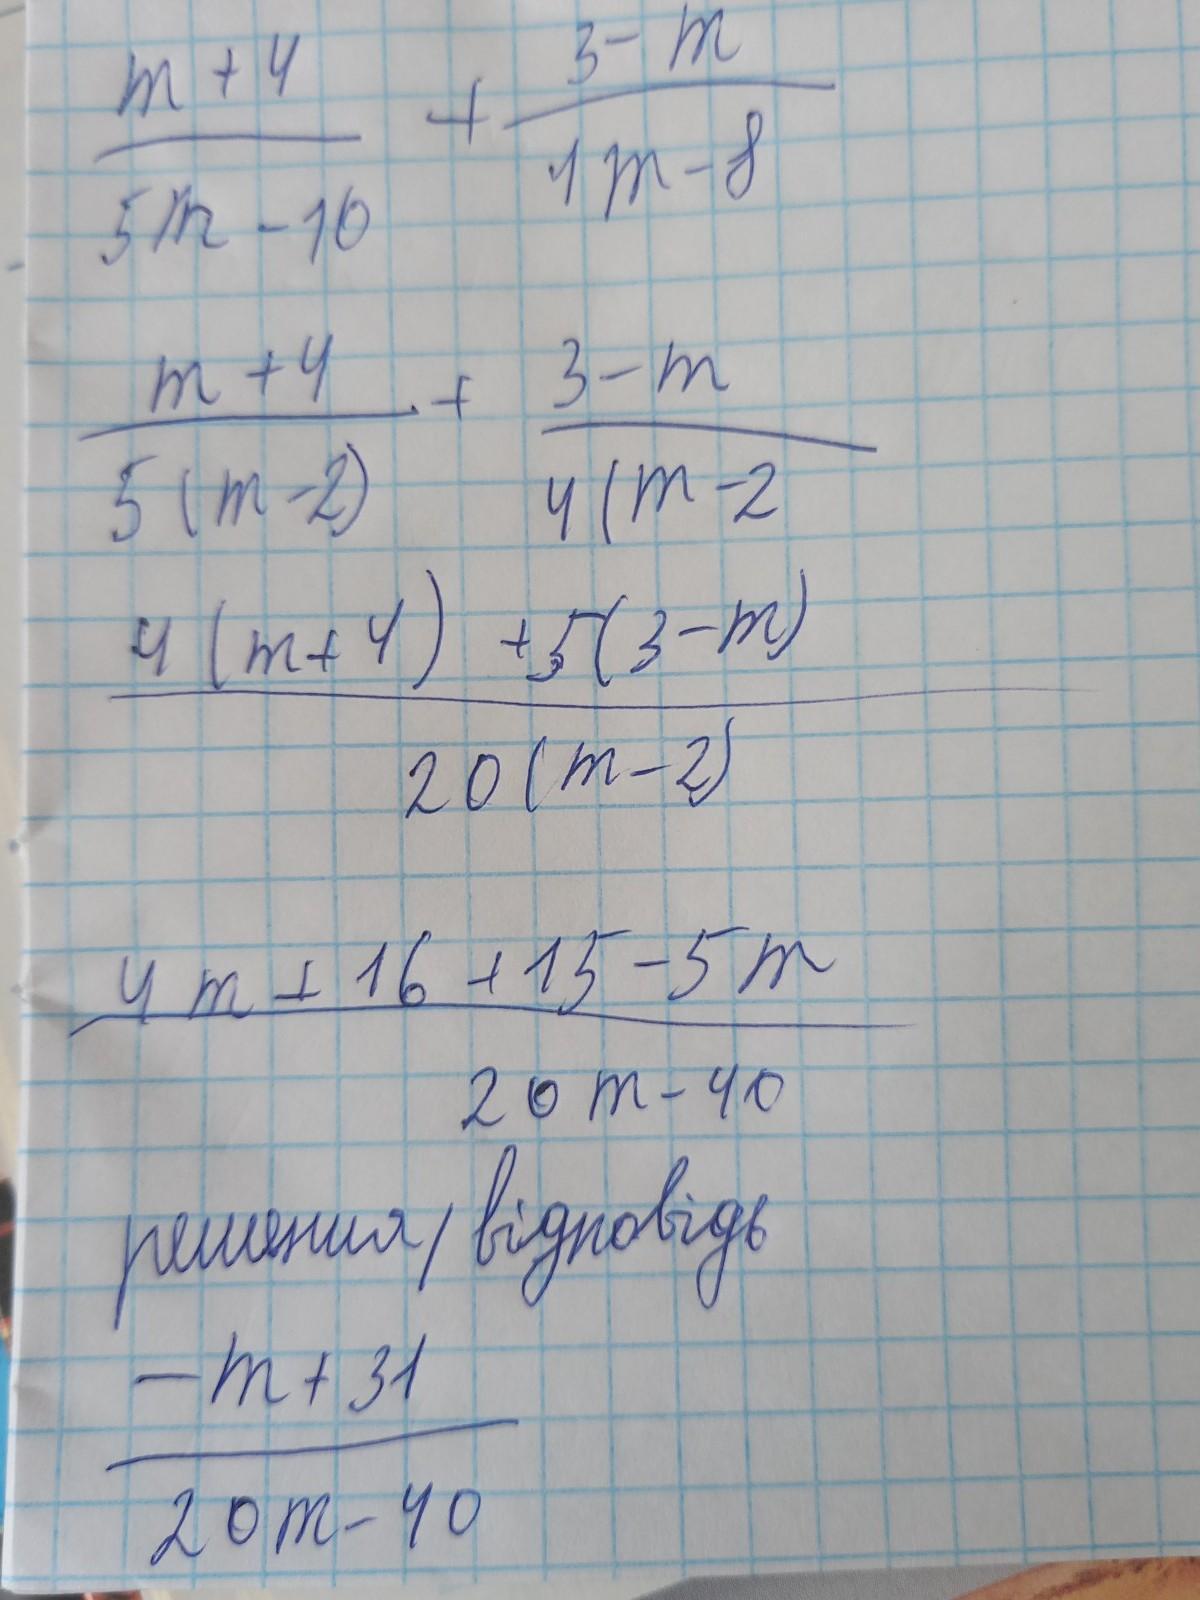 m + 4 + 3 - m
5m - 10 4m - 8
m + 4 + 3 - m
5(m - 2) 4(m - 2
4(m + 4) + 5(3 - m)
20(m - 2)
4m + 16 + 15 - 5m
20m - 40
решения/відповідь
-m + 31
20m - 40